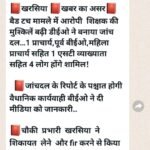 खरसिया खबर का असर
बैड टच मामले में आरोपी शिक्षक की
मुस्किलें बढ़ी डीईओ ने बनाया जांच
दल...1 प्राचार्य,पूर्व बीईओ,महिला
प्राचार्य सहित 1 एसटी व्याख्याता
सहित 4 लोग होंगे शामिल!
जांचदल के रिपोर्ट के पश्चात होगी
वैधानिक कार्यवाही बीईओ ने दी
मीडिया को जानकारी..
चौकी प्रभारी खरसिया ने
शिकायत लेने और fir करने से किया